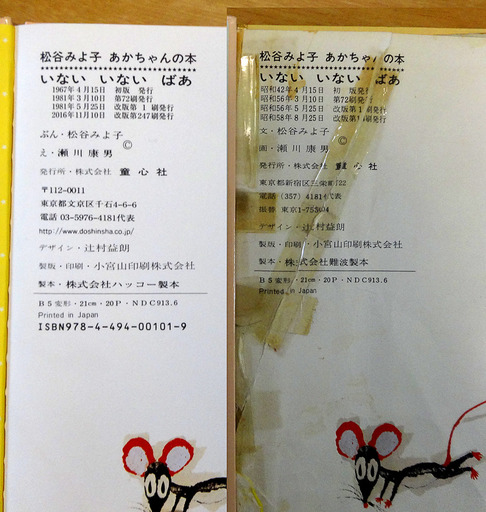 松谷みよ子 あかちゃんの本
いない いない ばあ
1967年4月15日 初版 発行
1981年3月10日 第72刷発行
1981年5月25日 改版第1刷発行
2016年11月10日 改版第247刷発行
ぶん・松谷みよ子
©
え・瀬川康男
発行所・株式会社 童心社
〒112-0011
東京都文京区千石4-6-6
電話 03-5976-4181代表
http://www.doshinsha.co.jp/
デザイン・辻村益朗
製版・印刷・小宮山印刷株式会社
製本・株式会社ハッコー製本
B5変形・21cm・20P・NDC913.6
Printed in Japan
ISBN978-4-494-00101-9
松谷みよ子 あかちゃんの本
いない いない ばあ
昭和42年4月15日 初 版発行
昭和56年3月10日 第72刷発行
昭和56年5月25日 改版第1刷発行
昭和58年8月25日 改版第 刷発行
文・松谷みよ子
©
画・瀬川康男
発行所・株式会社 童心社
東京都新宿区三栄町22
電話 (357) 4181代表
振替 東京
デザイン・辻村益朗
製版・印刷・小宮山印刷株式会社
製本・株式会社難波製本
B5変形・21cm・20P・NDC913.6
Printed in Japan